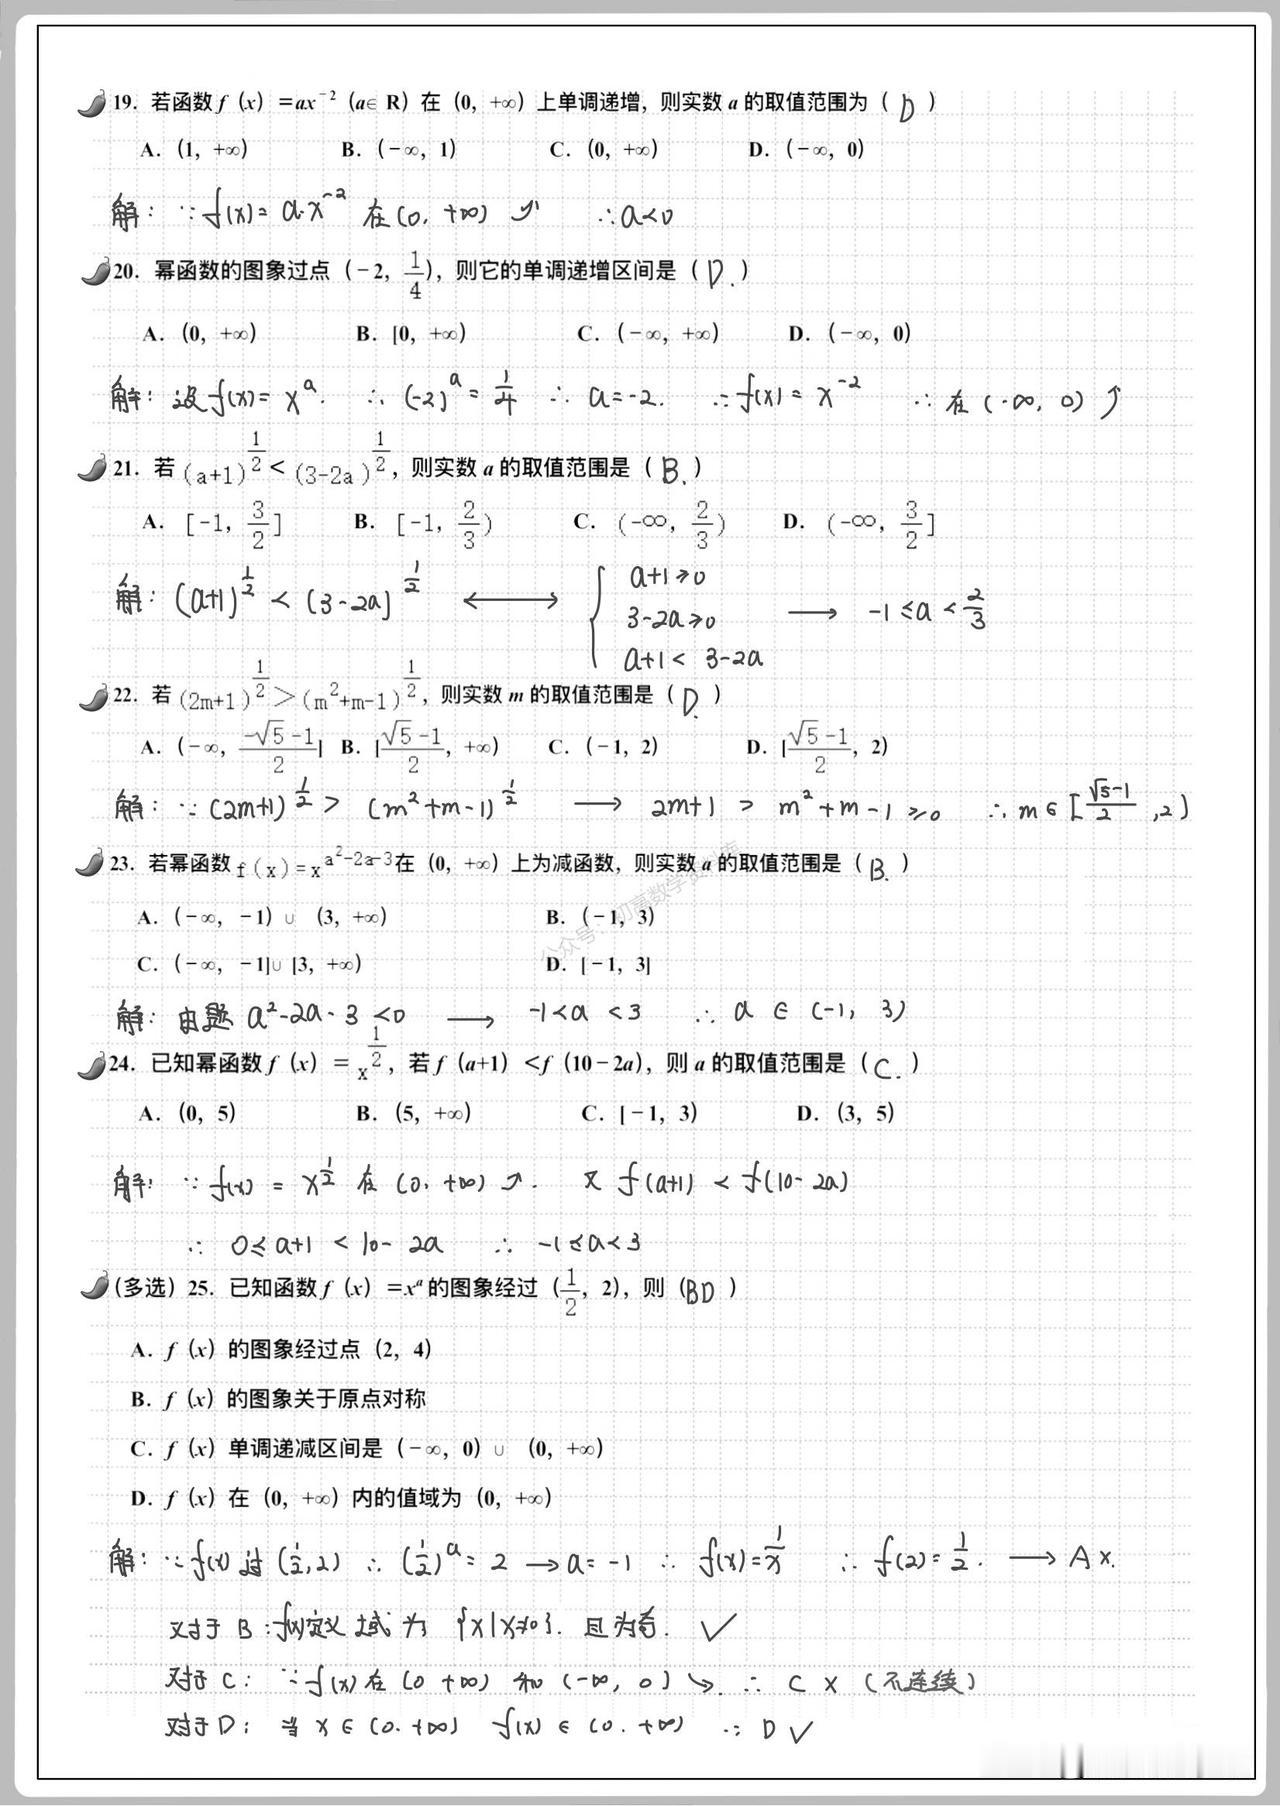 19. 若函数 f (x) =ax⁻² (a∈ R) 在 (0, +∞) 上单调递增, 则实数 a 的取值范围为 ( D )
A. (1, +∞) B. (-∞, 1) C. (0, +∞) D. (-∞, 0)
解: ∵ f(x)= a·x⁻² 在(0, +∞) ↗ ∴a<0
20. 幂函数的图象过点 (-2, 1/4), 则它的单调递增区间是 ( D. )
A. (0, +∞) B. [0, +∞) C. (-∞, +∞) D. (-∞, 0)
解: 设f(x)= xᵃ. ∴ (-2)ᵃ = 1/4 ∴ a=-2. ∴f(x) = x⁻² ∴ 在 (-∞, 0) ↗
21. 若 (a+1)^(1/2) < (3-2a)^(1/2), 则实数 a 的取值范围是 ( B. )
A. [-1, 3/2] B. [-1, 2/3) C. (-∞, 2/3) D. (-∞, 3/2]
解: (a+1)^(1/2) < (3-2a)^(1/2) ⟷ { a+1≥0
3-2a≥0 ⟶ -1≤a<2/3
a+1< 3-2a
22. 若 (2m+1)^(1/2) > (m²+m-1)^(1/2), 则实数 m 的取值范围是 ( D. )
A. (-∞, (-√5-1)/2] B. [(√5-1)/2, +∞) C. (-1, 2) D. [(√5-1)/2, 2)
解: ∵ (2m+1)^(1/2) > (m²+m-1)^(1/2) ⟶ 2m+1 > m²+m-1≥0 ∴m∈[(√5-1)/2,2)
23. 若幂函数 f(x)=x^(a²-2a-3)在 (0, +∞) 上为减函数, 则实数 a 的取值范围是 ( B. )
A. (-∞, -1) ∪ (3, +∞) B. (-1, 3)
公众号: 初高数学资料库
C. (-∞, -1]∪ [3, +∞) D. [-1, 3]
解: 由题 a²-2a-3<0 ⟶ -1<a<3 ∴ a ∈ (-1, 3)
24. 已知幂函数 f (x) = x^(1/2), 若 f (a+1) <f (10-2a), 则 a 的取值范围是 ( C. )
A. (0, 5) B. (5, +∞) C. [-1, 3) D. (3, 5)
解: ∵ f(x) = x^(1/2) 在 (0, +∞) ↗. 又 f(a+1) < f(10-2a)
∴ 0≤a+1 < 10-2a ∴ -1≤a<3
(多选) 25. 已知函数 f (x) =xᵃ 的图象经过 (1/2, 2), 则 (BD )
A. f (x) 的图象经过点 (2, 4)
B. f (x) 的图象关于原点对称
C. f (x) 单调递减区间是 (-∞, 0) ∪ (0, +∞)
D. f (x) 在 (0, +∞) 内的值域为 (0, +∞)
解: ∵ f(x) 过 (1/2,2) ∴ (1/2)ᵃ= 2 ⟶a= -1 ∴ f(x)=1/x ∴ f(2)=1/2. ⟶ A ×.
又对于 B :f(x)定义域为 {x|x≠0}. 且为奇. ✓
对于 C: ∵ f(x) 在 (0 +∞) 和 (-∞, 0) ↘. ∴ C × (不连续)
对于 D: 当 x∈(0, +∞) f(x) ∈ (0, +∞) ∴ D ✓